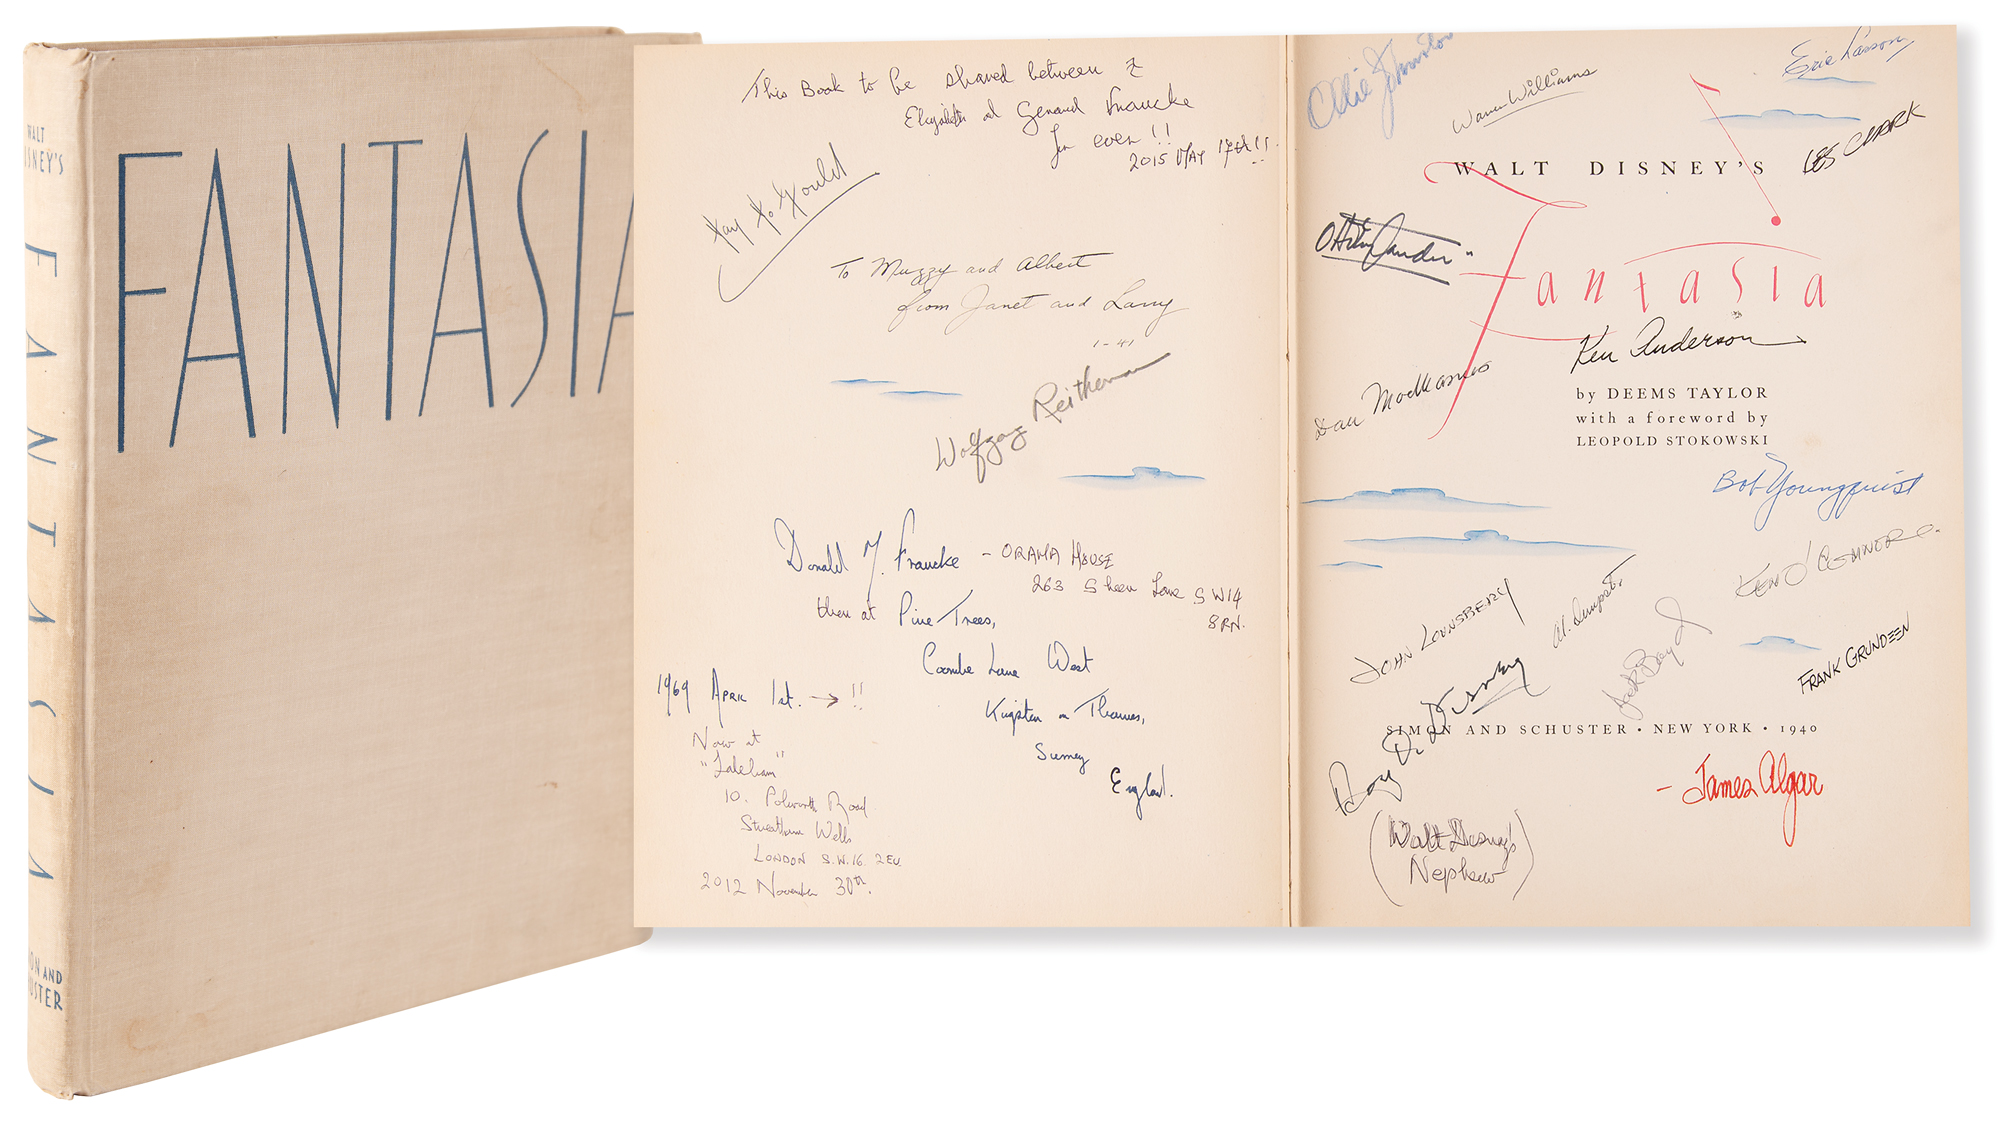 WALT
DISNEY'S
FANTASIA
ON AND
USTER
FANTASIA
This Book to be shared between
Elizabeth Gerard Francke
for ever !!
2015 MAY 17th !!
Kay Gould
To Muzzy and Albert
from Janet and Larry
1-41
Wolfgang Reitherman
Donald M. Francke - ORAMA HOUSE
263 Sheen Lane SW14
8RN.
then at Pine Trees,
Coombe Lane West
Kingston on Thames,
Surrey
England.
1969 APRIL 1st. → !!
Now at
10. Polworth Road
Streatham Wells
LONDON S.W.16. 2EU.
2012 November 30th.
Ollie Johnston
Warren Williams
Eric Larson
LES CLARK
WALT DISNEY'S
Fantasia
Ken Anderson
by DEEMS TAYLOR
with a foreword by
LEOPOLD STOKOWSKI
Dan MacManus
Bob Youngquist
KEN O'CONNOR
JOHN LOUNSBERY
Al. Dempster
Jack Boyd
FRANK GRUNDEEN
SIMON AND SCHUSTER • NEW YORK • 1940
Roy Disney
(Walt Disney's
Nephew)
- James Algar